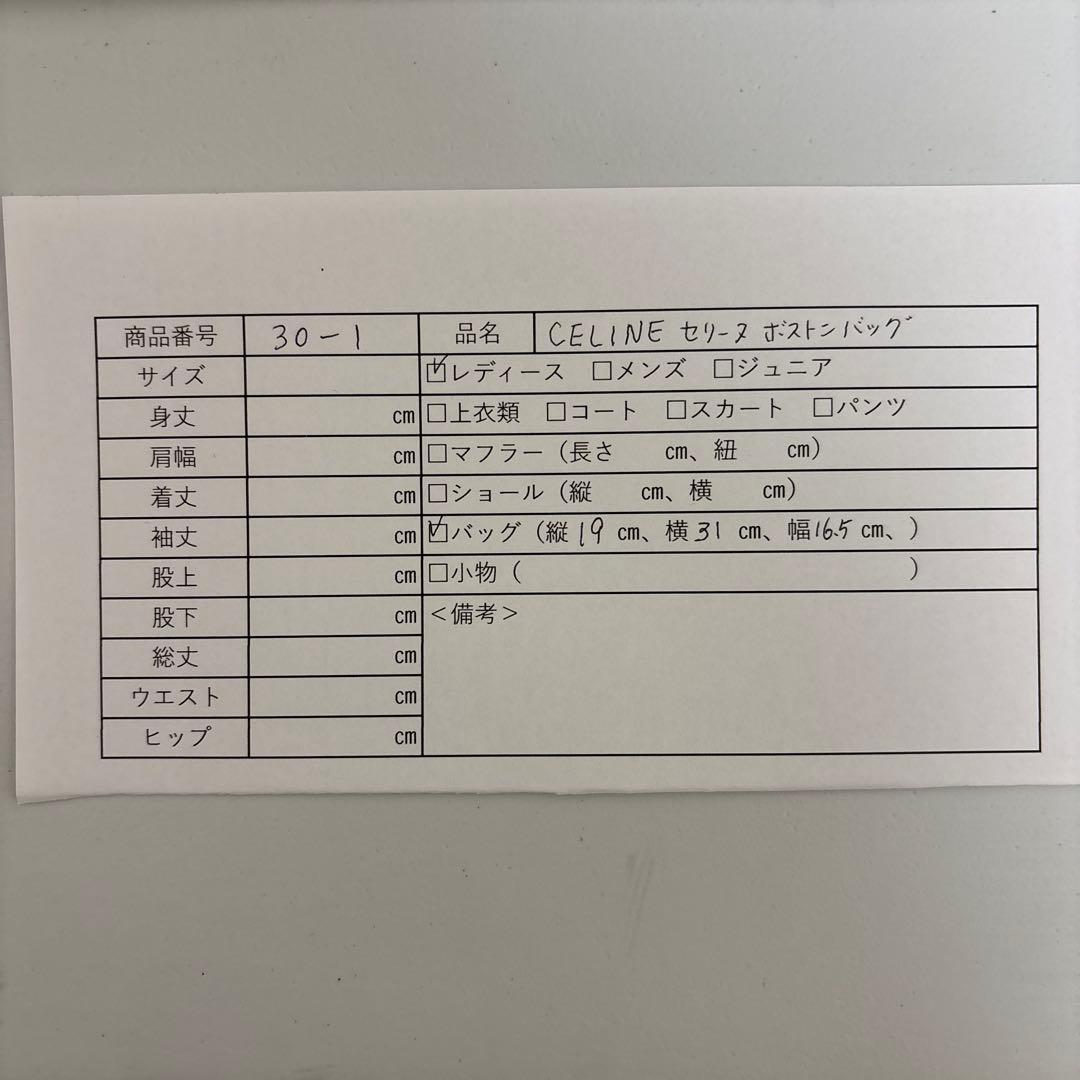 商品番号 30-1 品名 CELINE セリーヌ ボストンバッグ
サイズ ☑レディース □メンズ □ジュニア
身丈 cm □上衣類 □コート □スカート □パンツ
肩幅 cm □マフラー（長さ cm、紐 cm）
着丈 cm □ショール（縦 cm、横 cm）
袖丈 cm ☑バッグ（縦19cm、横31cm、幅16.5cm、）
股上 cm □小物（ ）
股下 cm ＜備考＞
総丈 cm
ウエスト cm
ヒップ cm